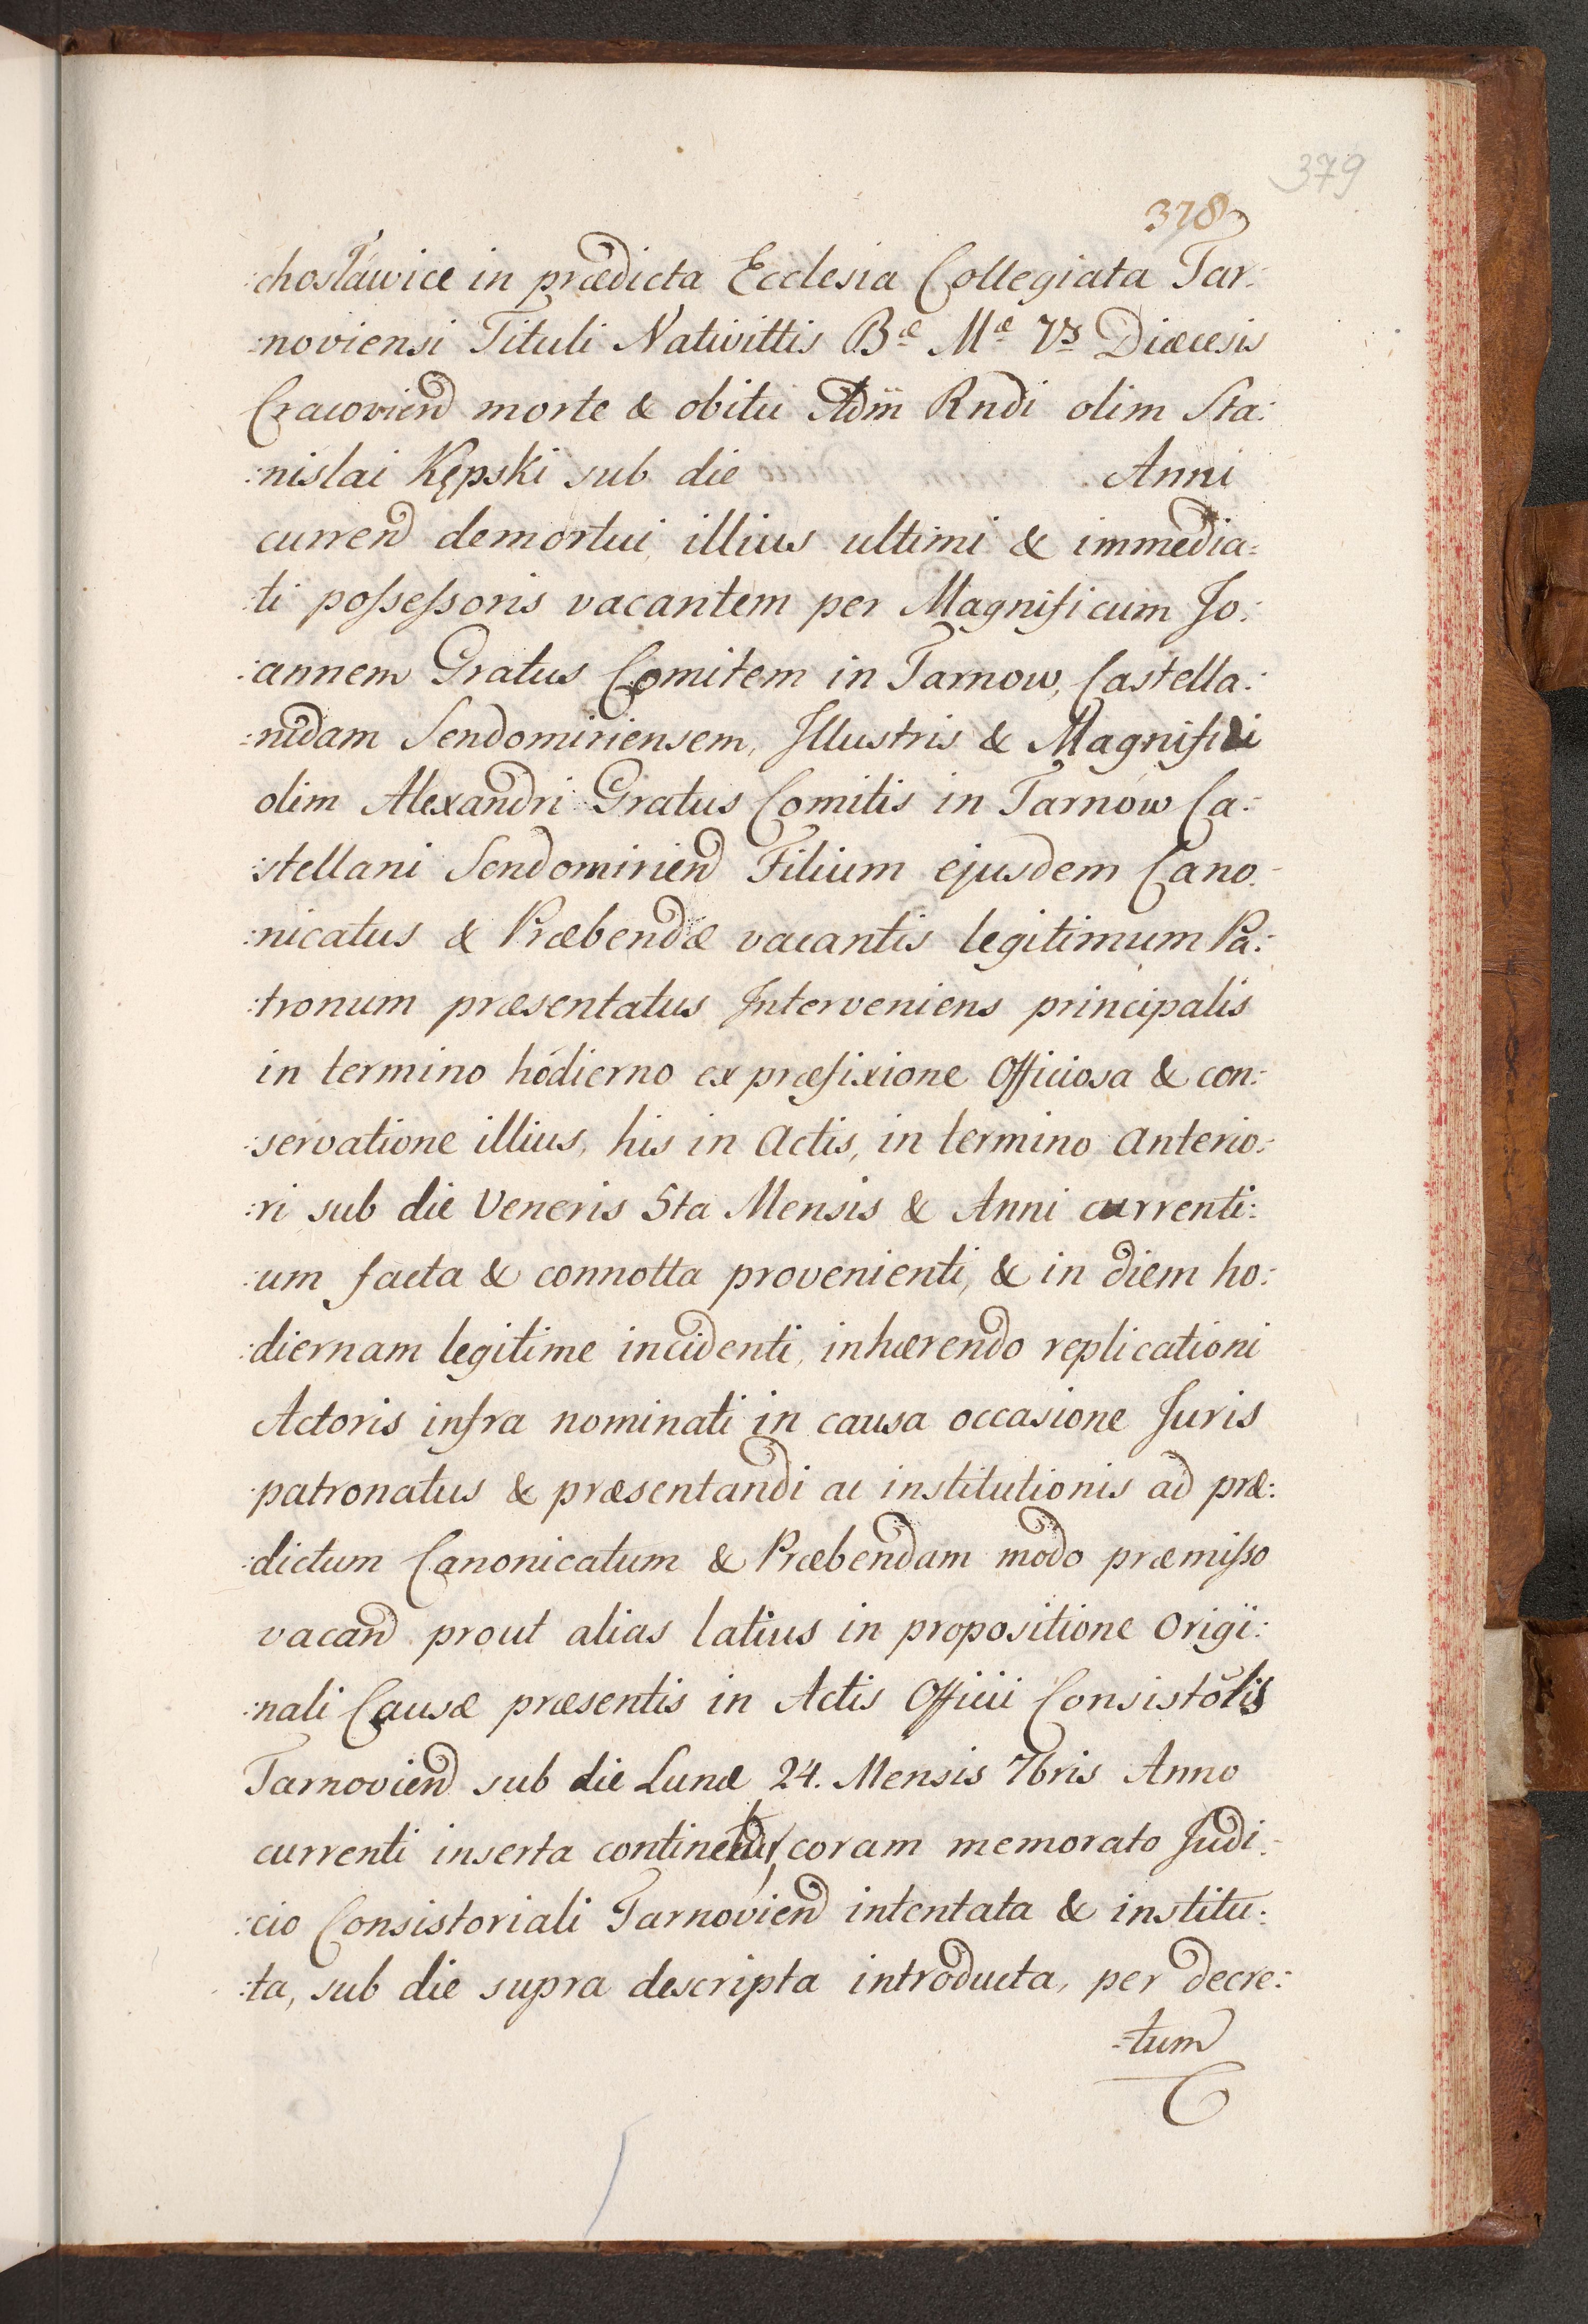 379
378
:chosławice in prædicta Ecclesia Collegiata Tar:
:noviensi Tituli Nativittis Bæ Mæ Vs Diæcesis
Cracovien morte & obitu Adm Rndi olim Sta:
:nislai Kępski sub die Anni
curren demortui illius ultimi & immedia:
:ti possessoris vacantem per Magnificum Jo:
:annem Gratus Comitem in Tarnow, Castella:
:nidam Sendomiriensem, Illustris & Magnifici
olim Alexandri Gratus Comitis in Tarnów Ca:
:stellani Sendomirien Filium ejusdem Cano:
:nicatus & Præbendæ vacantis legitimum Pa:
:tronum præsentatus Interveniens principalis
in termino hodierno ex præfixione Officiosa & con:
:servatione illius, his in Actis, in termino anterio:
:ri sub die Veneris 5ta Mensis & Anni currenti:
:um facta & connotta provenienti, & in diem ho:
:diernam legitime incidenti, inhærendo replicationi
Actoris infra nominati in causa occasione Juris
patronatus & præsentandi ac institutionis ad præ:
:dictum Canonicatum & Præbendam modo præmisso
vacan prout alias latius in propositione Origi:
:nali Causæ præsentis in Actis Officii Consistolis
Tarnovien sub die Lunæ 24. Mensis 7bris Anno
currenti inserta coram memorato Judi:
:cio Consistoriali Tarnovien intentata & institu:
:ta, sub die supra descripta introducta, per decre:
=tum